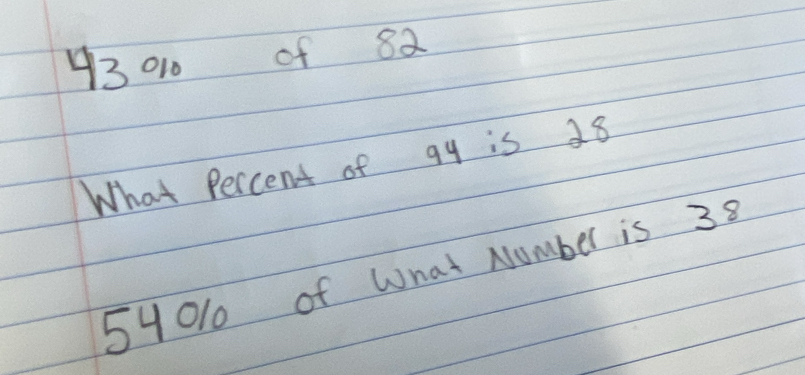 43% of 82
What Percent of 94 is 28
54% of What Number is 38